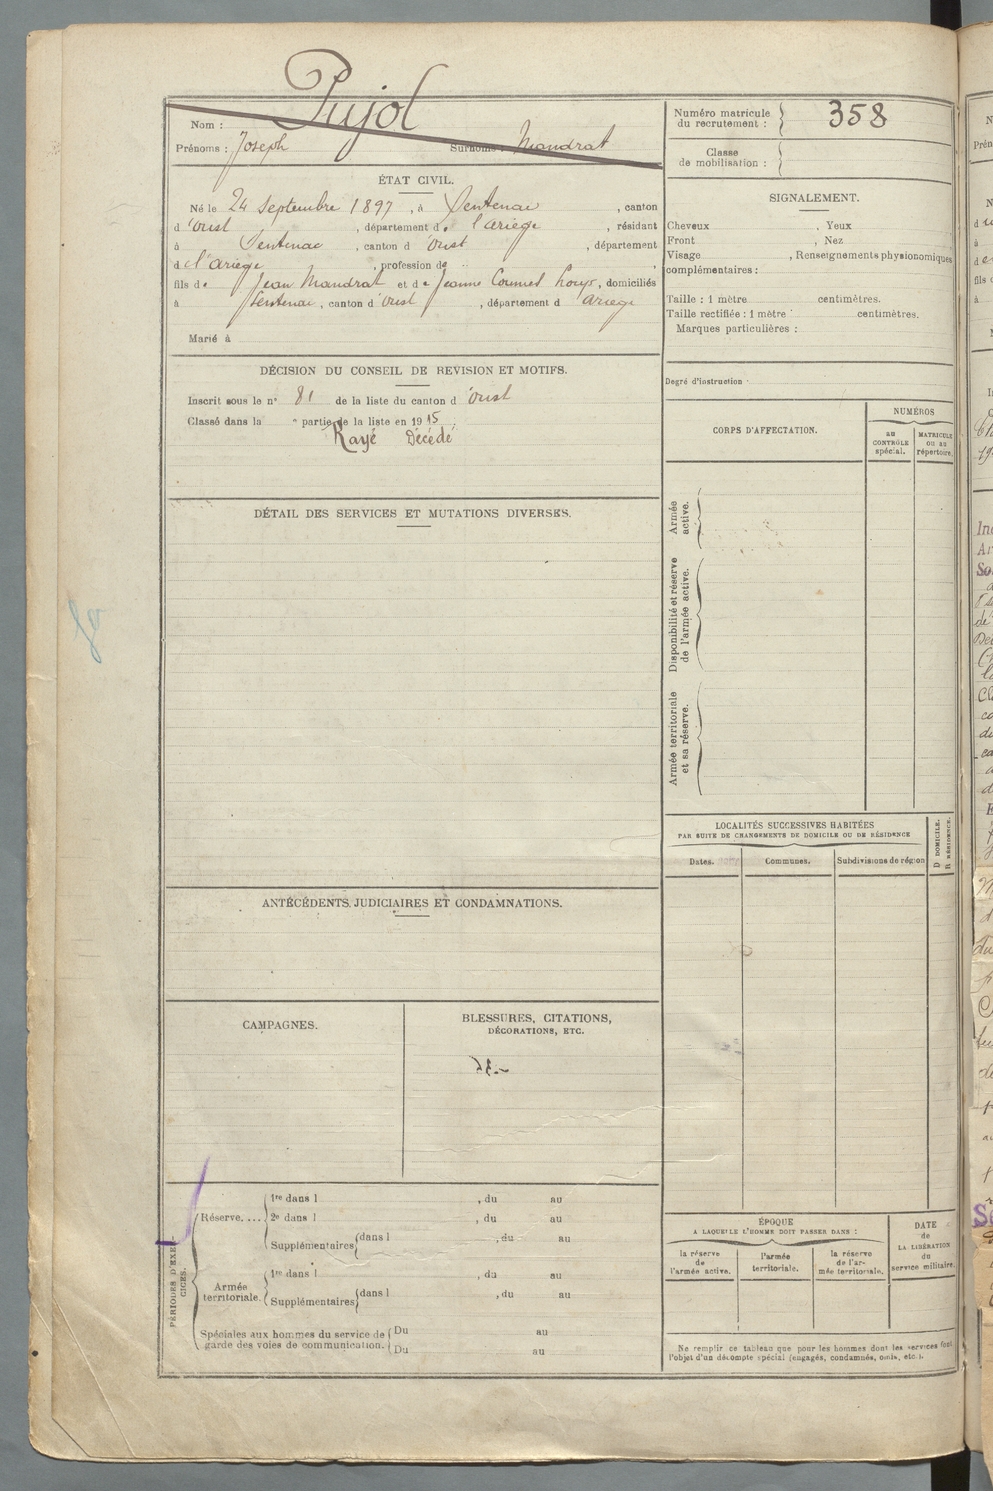 Pujol
Nom :
Prénoms : Joseph Surnoms : Mandrat
Numéro matricule
du recrutement : 358
Classe
de mobilisation :
ÉTAT CIVIL.
Né le 24 Septembre 1897, à Sentenac, canton
d'Oust, département de l'Ariège, résidant
à Sentenac, canton d'Oust, département
d l'Ariège, profession de
fils de Jean Mandrat et de Jeanne Coumes, domiciliés
à Sentenac, canton d'Oust, département d Ariège
Marié à
SIGNALEMENT.
Cheveux , Yeux
Front , Nez
Visage , Renseignements physionomiques
complémentaires :
Taille : 1 mètre centimètres.
Taille rectifiée : 1 mètre centimètres.
Marques particulières :
Degré d'instruction
DÉCISION DU CONSEIL DE REVISION ET MOTIFS.
Inscrit sous le n° 81 de la liste du canton d'Oust
Classé dans la e partie de la liste en 1915.
Rayé Décédé
DÉTAIL DES SERVICES ET MUTATIONS DIVERSES.
CORPS D'AFFECTATION.
NUMÉROS
au
CONTRÔLE
spécial.
MATRICULE
ou au
répertoire.
Armée
active.
Disponibilité et réserve
de l'armée active.
Armée territoriale
et sa réserve.
LOCALITÉS SUCCESSIVES HABITÉES
PAR SUITE DE CHANGEMENTS DE DOMICILE OU DE RÉSIDENCE
D DOMICILE.
R RÉSIDENCE.
Dates. Communes. Subdivisions de région
ANTÉCÉDENTS JUDICIAIRES ET CONDAMNATIONS.
CAMPAGNES.
BLESSURES, CITATIONS,
DÉCORATIONS, ETC.
PÉRIODES D'EXER-
CICES.
Réserve....
1re dans l , du au
2e dans l , du au
Supplémentaires dans l , du au
Armée
territoriale.
1re dans l , du au
Supplémentaires dans l , du au
Spéciales aux hommes du service de
garde des voies de communication.
Du au
Du au
ÉPOQUE
A LAQUELLE L'HOMME DOIT PASSER DANS :
la réserve
de
l'armée active.
l'armée
territoriale.
la réserve
de l'ar-
mée territoriale.
DATE
de
LA LIBÉRATION
du
service militaire.
Ne remplir ce tableau que pour les hommes dont les services font
l'objet d'un décompte spécial (engagés, condamnés, omis, etc.).